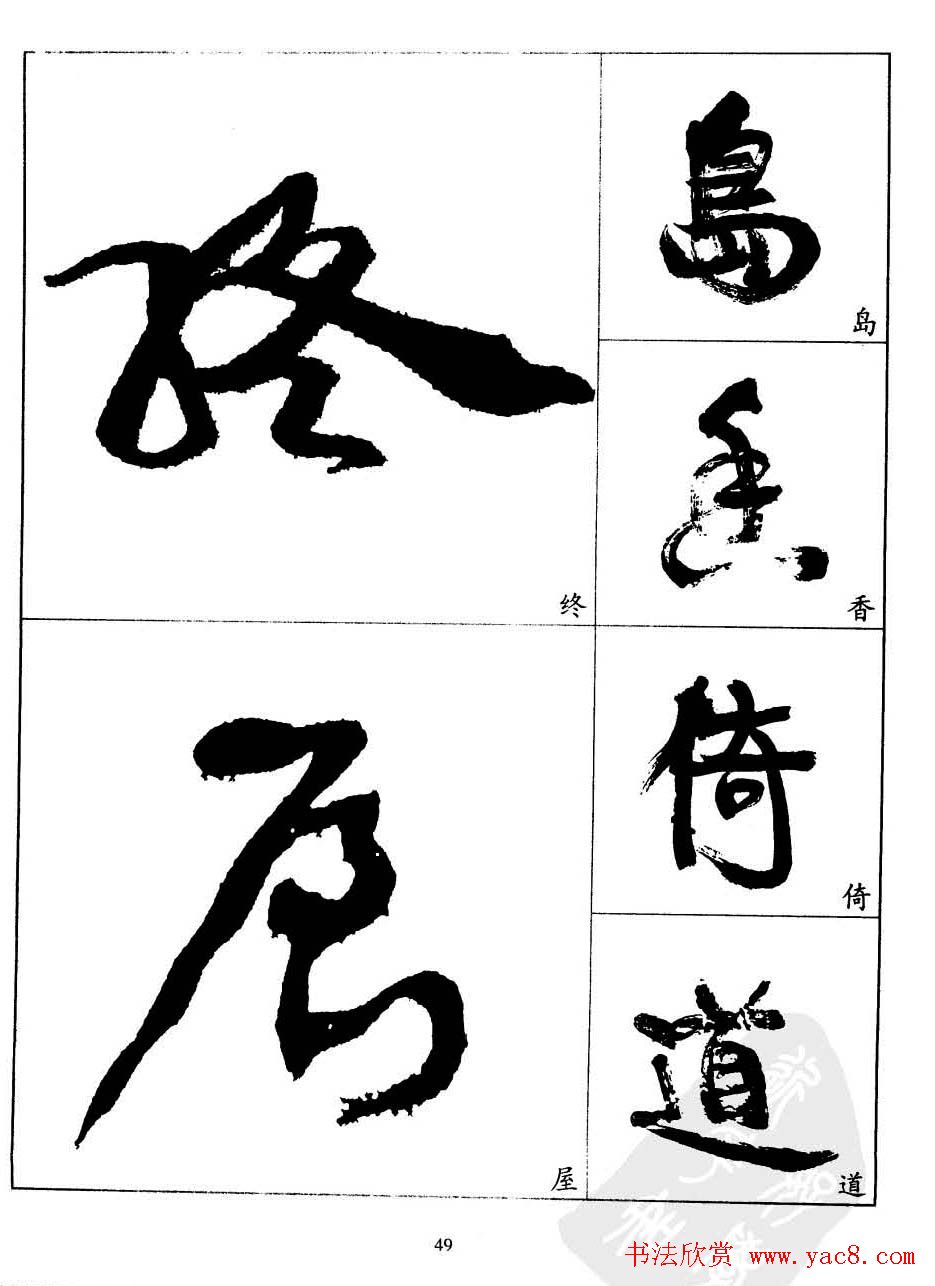 终
终
屋
屋
島
岛
香
香
倚
倚
道
道
49
书法欣赏 www.yac8.com